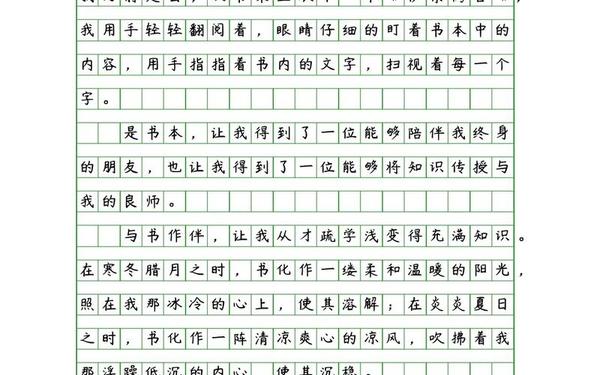 我用手轻轻翻阅着，眼睛仔细的盯着书本中的
内容，用手指指着书内的文字，扫视着每一个
字。
是书本，让我得到了一位能够陪伴我终身
的朋友，也让我得到了一位能够将知识传授与
我的良师。
与书作伴，让我从才疏学浅变得充满知识。
在寒冬腊月之时，书化作一缕柔和温暖的阳光，
照在我那冰冷的心上，使其溶解；在炎炎夏日
之时，书化作一阵清凉爽心的凉风，吹拂着我
那浮躁低沉的内心，使其沉稳。